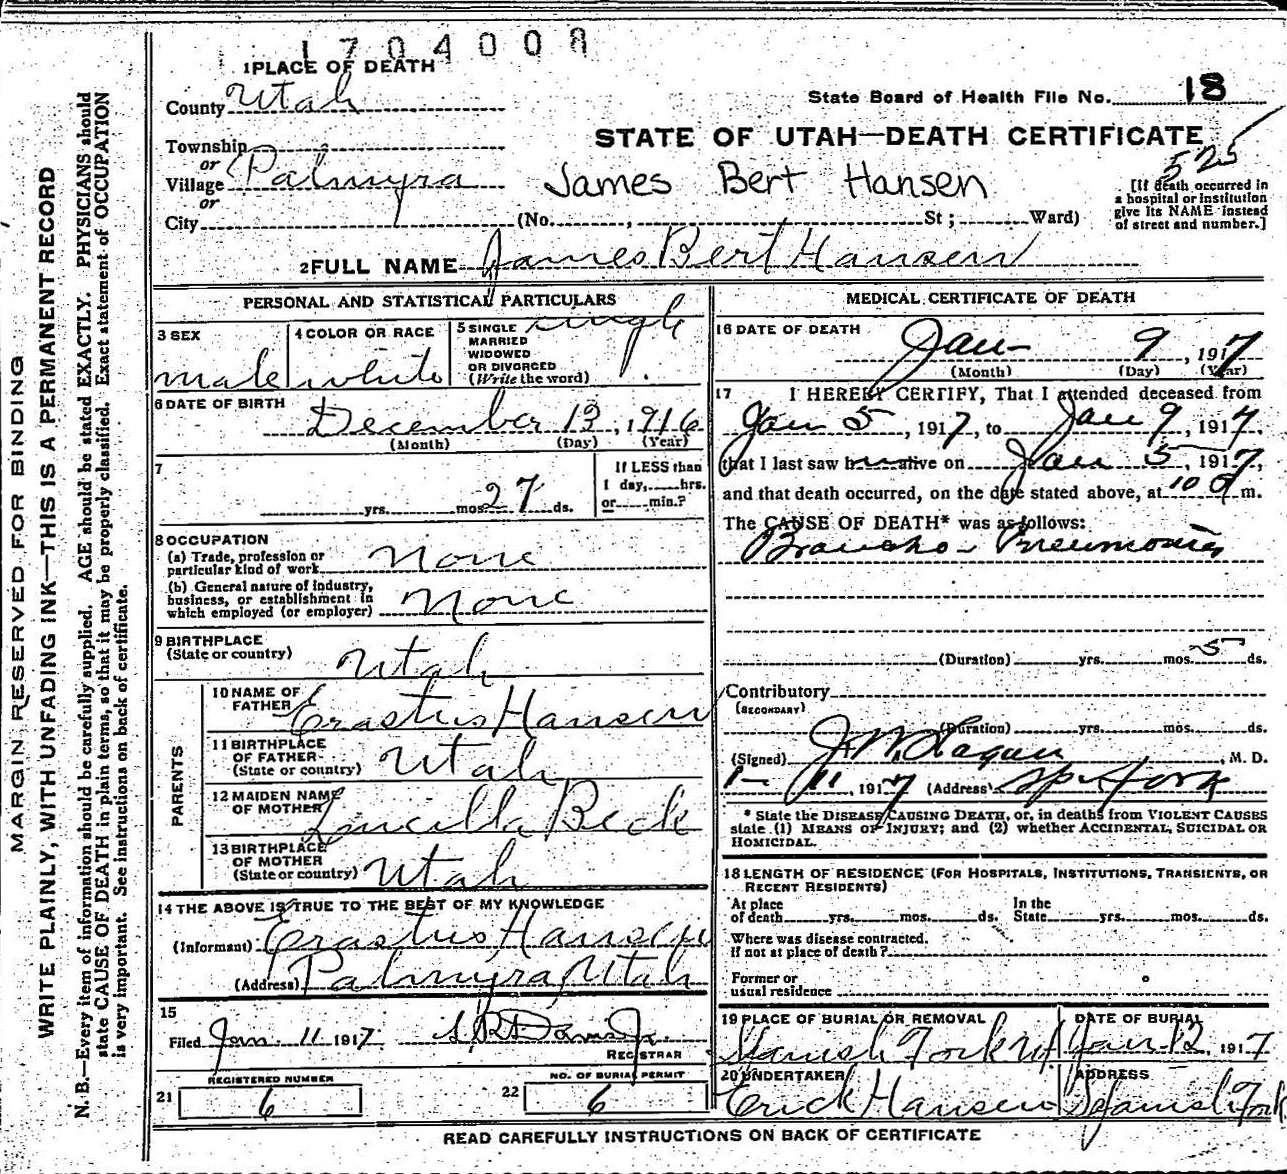 1704008
1 PLACE OF DEATH
County Utah
State Board of Health File No. 18
Township
or
Village Palmyra
or
City
STATE OF UTAH—DEATH CERTIFICATE
525
James Bert Hansen
[If death occurred in
a hospital or institution
give its NAME instead
of street and number.]
(No. , St ; Ward)
2 FULL NAME James Bert Hansen
PERSONAL AND STATISTICAL PARTICULARS
3 SEX
male
4 COLOR OR RACE
white
5 SINGLE
MARRIED
WIDOWED
OR DIVORCED
(Write the word)
single
6 DATE OF BIRTH
December 13, 1916
(Month) (Day) (Year)
7
yrs. mos. 27 ds.
If LESS than
1 day, hrs.
or min.?
8 OCCUPATION
(a) Trade, profession or
particular kind of work None
(b) General nature of industry,
business, or establishment in
which employed (or employer) None
9 BIRTHPLACE
(State or country) Utah
PARENTS
10 NAME OF
FATHER Erastus Hansen
11 BIRTHPLACE
OF FATHER
(State or country) Utah
12 MAIDEN NAME
OF MOTHER Luscilla Beck
13 BIRTHPLACE
OF MOTHER
(State or country) Utah
14 THE ABOVE IS TRUE TO THE BEST OF MY KNOWLEDGE
(Informant) Erastus Hansen
(Address) Palmyra, Utah
15
Filed Jan. 11 1917
REGISTRAR
REGISTERED NUMBER
21 6
NO. OF BURIAL PERMIT
22 6
MEDICAL CERTIFICATE OF DEATH
16 DATE OF DEATH
Jan- 9, 1917
(Month) (Day) (Year)
17 I HEREBY CERTIFY, That I attended deceased from
Jan 5, 1917, to Jan 9, 1917,
that I last saw him alive on Jan 5, 1917,
and that death occurred, on the date stated above, at 10 a m.
The CAUSE OF DEATH* was as follows:
Broncho-Pneumonia
(Duration) yrs. mos. 5 ds.
Contributory
(SECONDARY)
(Duration) yrs. mos. ds.
(Signed) , M. D.
1- 11, 1917 (Address) Sp. Fork
* State the DISEASE CAUSING DEATH, or, in deaths from VIOLENT CAUSES
state (1) MEANS OF INJURY; and (2) whether ACCIDENTAL, SUICIDAL OR
HOMICIDAL.
18 LENGTH OF RESIDENCE (FOR HOSPITALS, INSTITUTIONS, TRANSIENTS, OR
RECENT RESIDENTS)
At place
of death yrs. mos. ds.
In the
State yrs. mos. ds.
Where was disease contracted,
if not at place of death?
Former or
usual residence
19 PLACE OF BURIAL OR REMOVAL
Spanish Fork Ut
DATE OF BURIAL
Jan 12, 1917
20 UNDERTAKER
Erick Hansen
ADDRESS
Spanish Fork
READ CAREFULLY INSTRUCTIONS ON BACK OF CERTIFICATE
MARGIN RESERVED FOR BINDING
WRITE PLAINLY, WITH UNFADING INK—THIS IS A PERMANENT RECORD
N. B.—Every item of information should be carefully supplied. AGE should be stated EXACTLY. PHYSICIANS should
state CAUSE OF DEATH in plain terms, so that it may be properly classified. Exact statement of OCCUPATION
is very important. See instructions on back of certificate.